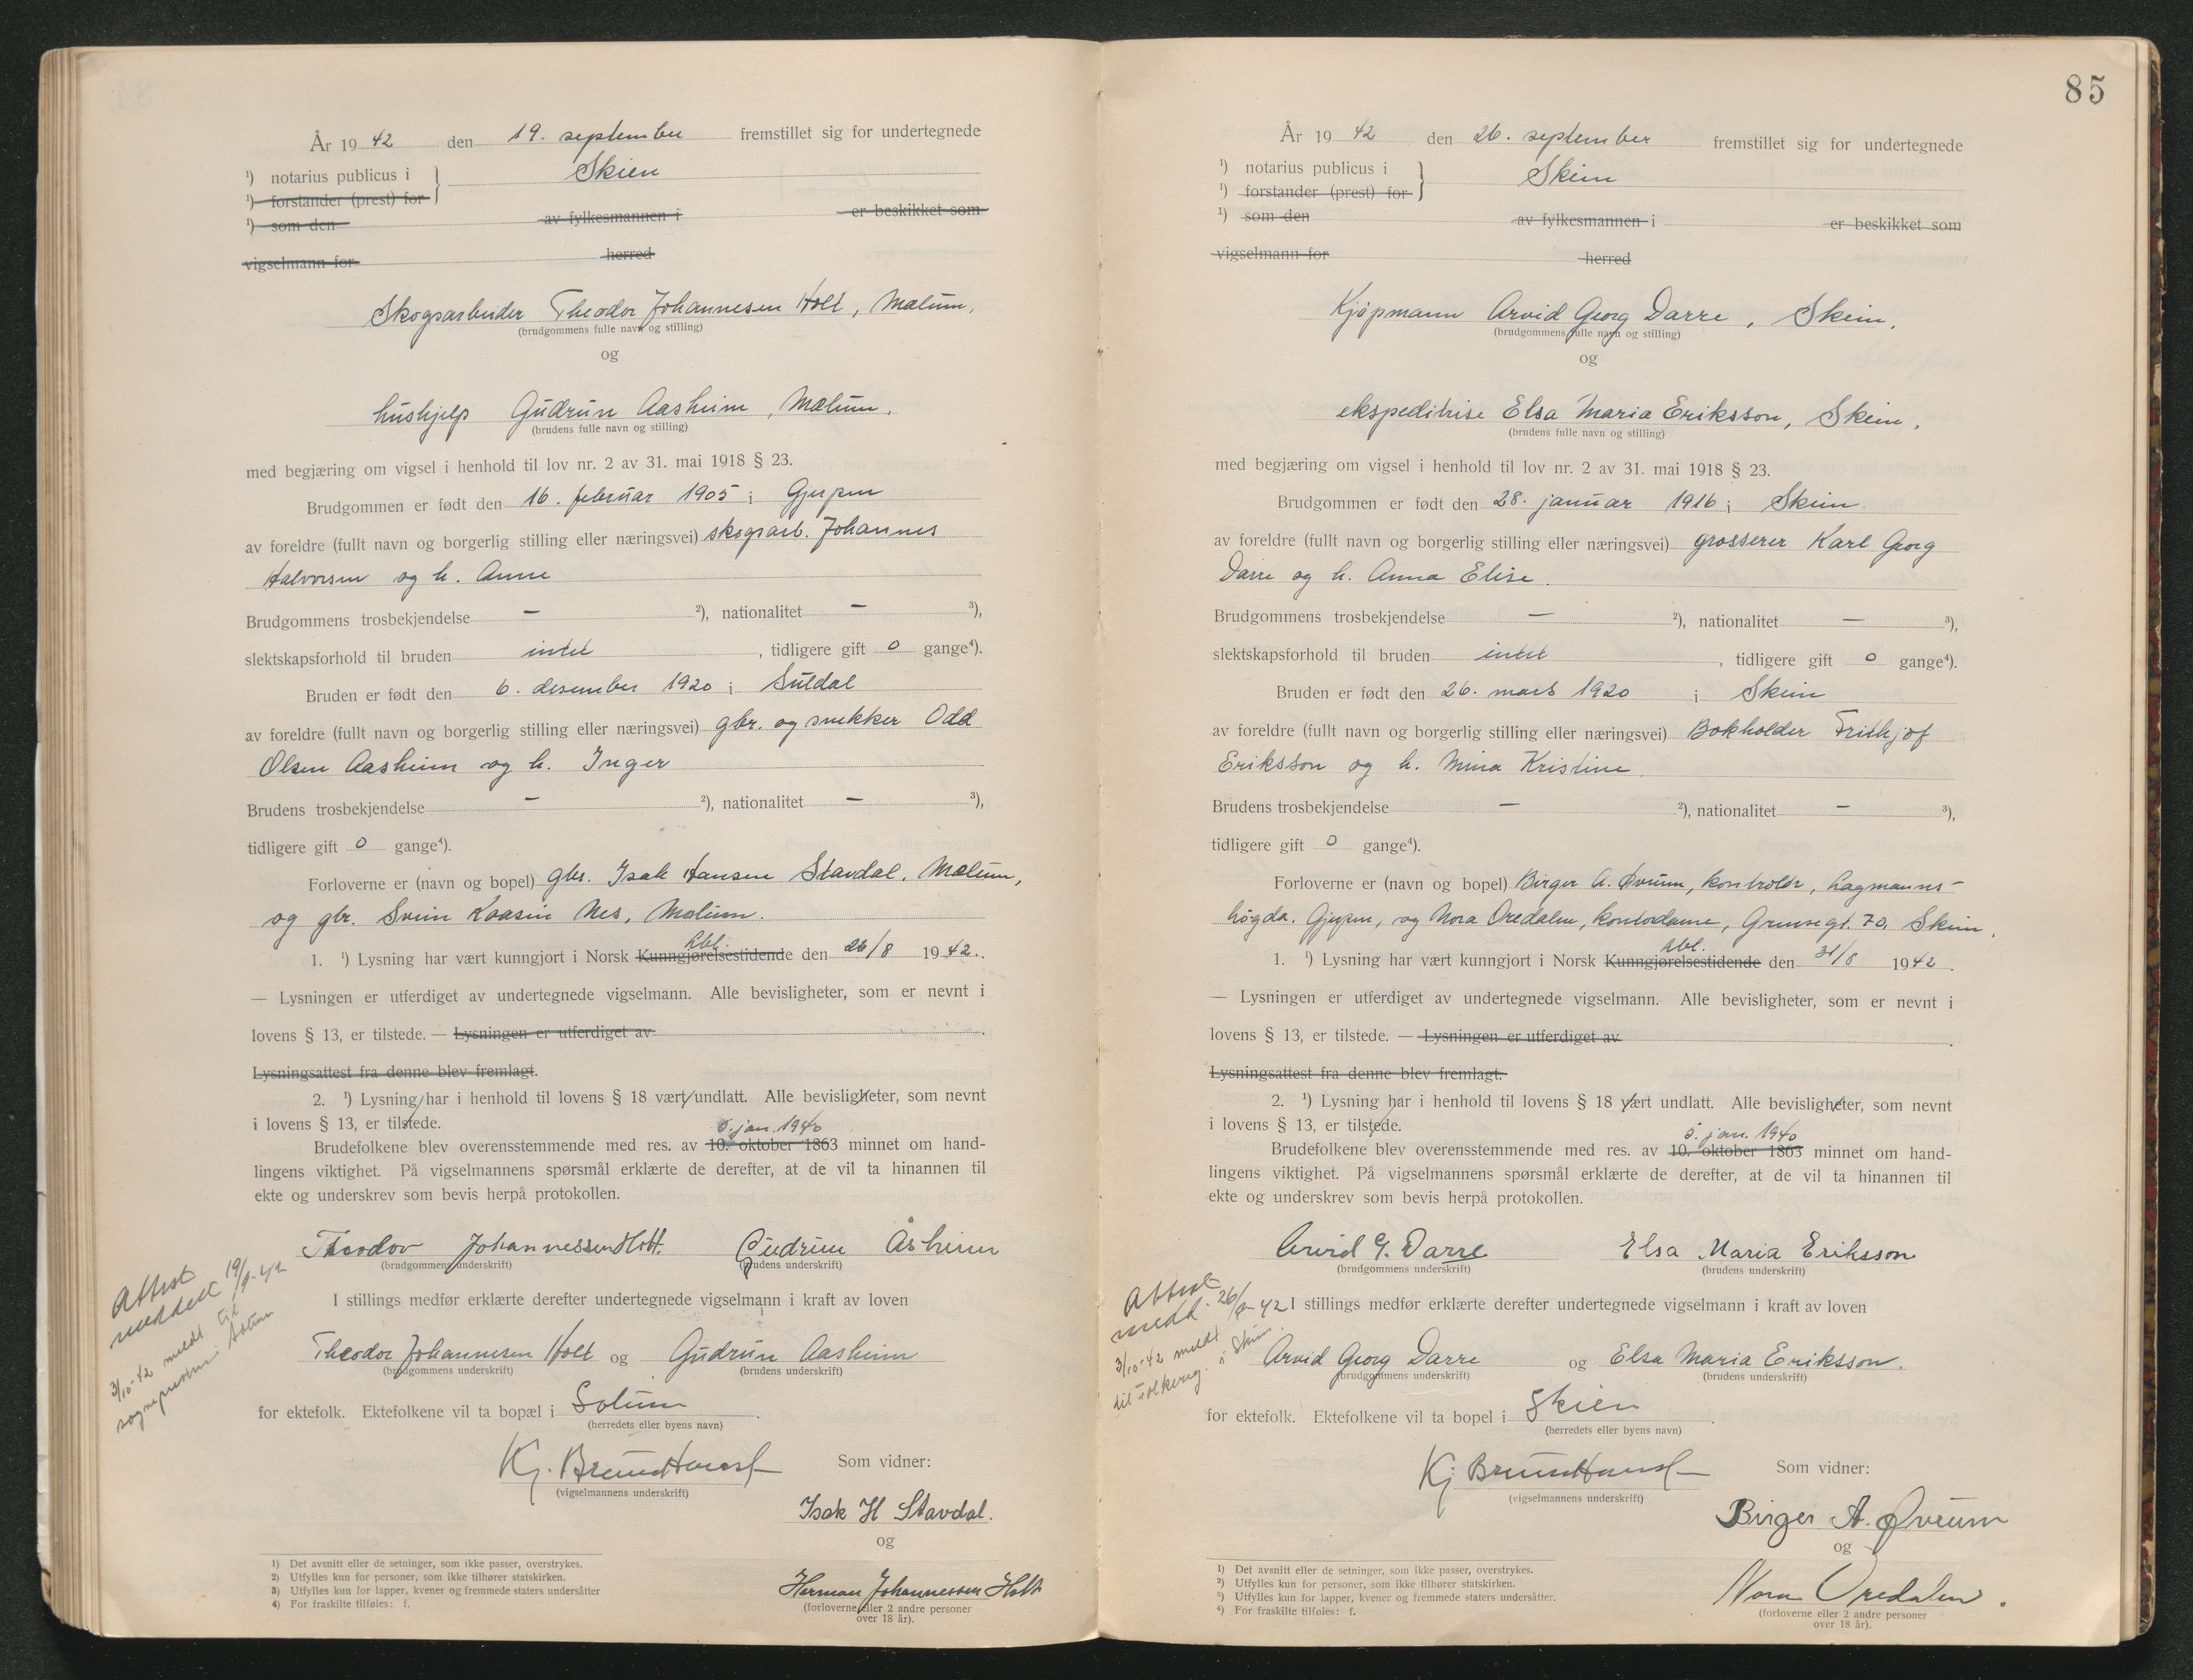 År 1942 den 19. september fremstillet sig for undertegnede
¹) notarius publicus i } Skien
¹) forstander (prest) for
¹) som den av fylkesmannen i er beskikket som
vigselmann for herred
Skogsarbeider Theodor Johannesen Holt, Mælum,
(brudgommens fulle navn og stilling)
og
hushjelp Gudrun Aasheim, Mælum.
(brudens fulle navn og stilling)
med begjæring om vigsel i henhold til lov nr. 2 av 31. mai 1918 § 23.
Brudgommen er født den 16. februar 1905 i Gjerpen
av foreldre (fullt navn og borgerlig stilling eller næringsvei) skogsarb. Johannes
Halvorsen og h. Anne
Brudgommens trosbekjendelse — ²), nationalitet — ³),
slektskapsforhold til bruden intet, tidligere gift 0 gange⁴).
Bruden er født den 6. desember 1920 i Suldal
av foreldre (fullt navn og borgerlig stilling eller næringsvei) gbr. og snekker Odd
Olsen Aasheim og h. Inger
Brudens trosbekjendelse — ²), nationalitet — ³),
tidligere gift 0 gange⁴).
Forloverne er (navn og bopel) gbr. Isak Hansen Stavdal, Mælum,
og gbr. Svein Kaasin Nes, Mælum.
kbl.
1. ¹) Lysning har vært kunngjort i Norsk Kunngjørelsestidende den 26/8 1942.
— Lysningen er utferdiget av undertegnede vigselmann. Alle bevisligheter, som er nevnt i
lovens § 13, er tilstede. — Lysningen er utferdiget av
Lysningsattest fra denne blev fremlagt.
2. ¹) Lysning har i henhold til lovens § 18 vært undlatt. Alle bevisligheter, som nevnt
i lovens § 13, er tilstede.
5. jan. 1940
Brudefolkene blev overensstemmende med res. av 10. oktober 1863 minnet om hand-
lingens viktighet. På vigselmannens spørsmål erklærte de derefter, at de vil ta hinannen til
ekte og underskrev som bevis herpå protokollen.
Theodor Johannessen Holt. Gudrun Åsheim
(brudgommens underskrift) (brudens underskrift)
Attest
meddelt 19/9-42
3/10-42 meldt til
sognepresten i Solum
I stillings medfør erklærte derefter undertegnede vigselmann i kraft av loven
Theodor Johannesen Holt og Gudrun Aasheim
(brudgommens underskrift) (brudens underskrift)
for ektefolk. Ektefolkene vil ta bopæl i Solum.
(herredets eller byens navn)
Kj. Brund Hansen
(vigselmannens underskrift)
Som vidner:
Isak H Stavdal.
og
Herman Johannessen Holt
(forloverne eller 2 andre personer
over 18 år).
1) Det avsnitt eller de setninger, som ikke passer, overstrykes.
2) Utfylles kun for personer, som ikke tilhører statskirken.
3) Utfylles kun for lapper, kvener og fremmede staters undersåtter
4) For fraskilte tilføies: f.
85
År 1942 den 26. september fremstillet sig for undertegnede
¹) notarius publicus i } Skien
¹) forstander (prest) for
¹) som den av fylkesmannen i er beskikket som
vigselmann for herred
Kjøpmann Arvid Georg Darre, Skien.
(brudgommens fulle navn og stilling)
og
ekspeditrise Elsa Maria Eriksson, Skien.
(brudens fulle navn og stilling)
med begjæring om vigsel i henhold til lov nr. 2 av 31. mai 1918 § 23.
Brudgommen er født den 28. januar 1916 i Skien
av foreldre (fullt navn og borgerlig stilling eller næringsvei) grosserer Karl Georg
Darre og h. Anna Elise.
Brudgommens trosbekjendelse — ²), nationalitet — ³),
slektskapsforhold til bruden intet, tidligere gift 0 gange⁴).
Bruden er født den 26. mars 1920 i Skien
av foreldre (fullt navn og borgerlig stilling eller næringsvei) Bokholder Frithjof
Eriksson og h. Mina Kristine
Brudens trosbekjendelse — ²), nationalitet — ³),
tidligere gift 0 gange⁴).
Forloverne er (navn og bopel) Birger A. Øvrum, kontrolør, Lagmanns-
høgda, Gjerpen, og Nora Oredalen, kontordame, Grensegt. 70, Skien.
kbl.
1. ¹) Lysning har vært kunngjort i Norsk Kunngjørelsestidende den 31/8 1942.
— Lysningen er utferdiget av undertegnede vigselmann. Alle bevisligheter, som er nevnt i
lovens § 13, er tilstede. — Lysningen er utferdiget av
Lysningsattest fra denne blev fremlagt.
2. ¹) Lysning har i henhold til lovens § 18 vært undlatt. Alle bevisligheter, som nevnt
i lovens § 13, er tilstede.
5. jan. 1940
Brudefolkene blev overensstemmende med res. av 10. oktober 1863 minnet om hand-
lingens viktighet. På vigselmannens spørsmål erklærte de derefter, at de vil ta hinannen til
ekte og underskrev som bevis herpå protokollen.
Arvid G. Darre Elsa Maria Eriksson
(brudgommens underskrift) (brudens underskrift)
Attest
medd. 26/9-42
3/10-42 meldt
til Folkereg. i Skien.
I stillings medfør erklærte derefter undertegnede vigselmann i kraft av loven
Arvid Georg Darre og Elsa Maria Eriksson.
(brudgommens underskrift) (brudens underskrift)
for ektefolk. Ektefolkene vil ta bopel i Skien.
(herredets eller byens navn)
Kj Brund Hansen
(vigselmannens underskrift)
Som vidner:
Birger A. Øvrum
og
Nora Oredalen.
(forloverne eller 2 andre personer
over 18 år).
¹) Det avsnitt eller de setninger, som ikke passer, overstrykes.
²) Utfylles kun for personer, som ikke tilhører statskirken.
³) Utfylles kun for lapper, kvener og fremmede staters undersåtter.
⁴) For fraskilte tilføies: f.